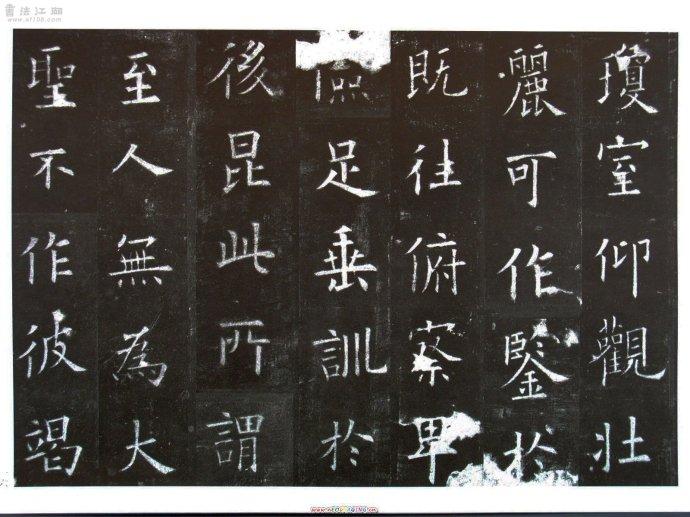 書法江湖
www.sf108.com
瓊室仰觀壯
麗可作鑒於
既往俯察卑
儉足垂訓於
後昆此所謂
至人無為大
聖不作彼竭